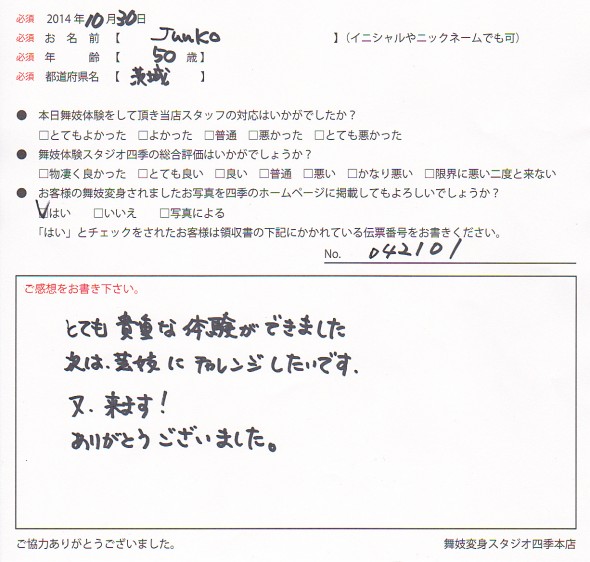 必須 2014年10月30日
必須 お名前【 Junko 】(イニシャルやニックネームでも可)
必須 年齢【 50 歳】
必須 都道府県名【 茨城 】
● 本日舞妓体験をして頂き当店スタッフの対応はいかがでしたか？
□とてもよかった □よかった □普通 □悪かった □とても悪かった
● 舞妓体験スタジオ四季の総合評価はいかがでしょうか？
□物凄く良かった □とても良い □良い □普通 □悪い □かなり悪い □限界に悪い二度と来ない
● お客様の舞妓変身されましたお写真を四季のホームページに掲載してもよろしいでしょうか？
☑はい □いいえ □写真による
「はい」とチェックをされたお客様は領収書の下記にかかれている伝票番号をお書きください。
No. 042101
ご感想をお書き下さい。
とても貴重な体験ができました
次は、芸妓にチャレンジしたいです。
又、来ます！
ありがとうございました。
ご協力ありがとうございました。 舞妓変身スタジオ四季本店